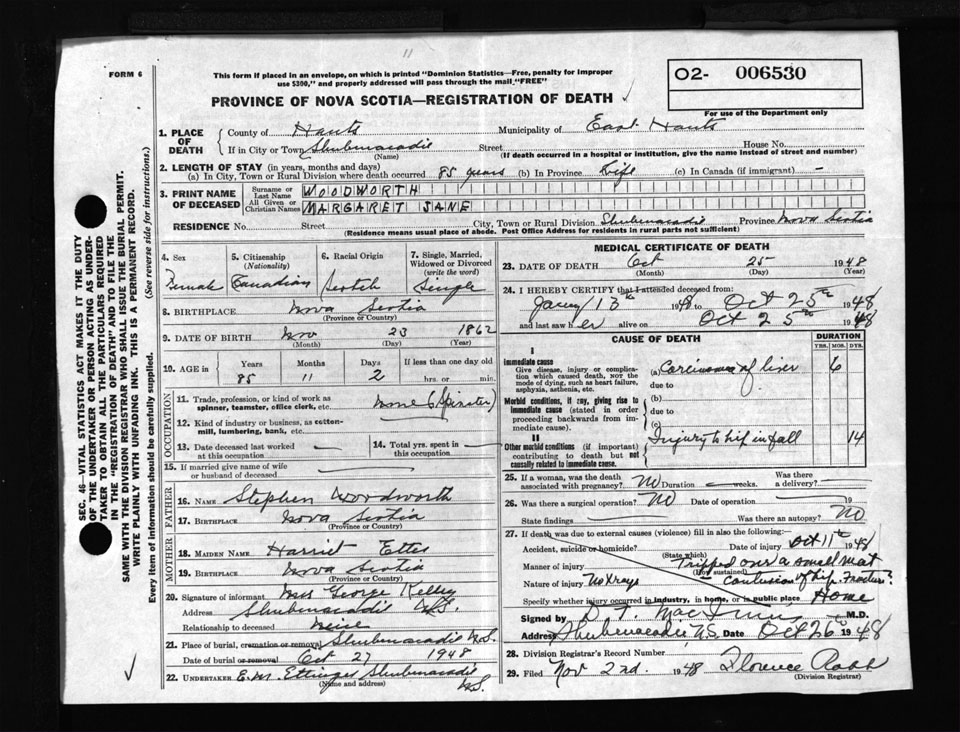 11
FORM 6
This form if placed in an envelope, on which is printed "Dominion Statistics—Free, penalty for improper
use $300," and properly addressed will pass through the mail "FREE"
PROVINCE OF NOVA SCOTIA—REGISTRATION OF DEATH ✓
O2- 006530
For use of the Department only
1. PLACE OF DEATH
County of Hants Municipality of East Hants
If in City or Town Shubenacadie Street House No.
(Name) (If death occurred in a hospital or institution, give the name instead of street and number)
2. LENGTH OF STAY (in years, months and days)
(a) In City, Town or Rural Division where death occurred 85 years (b) In Province Life (c) In Canada (if immigrant) -
3. PRINT NAME OF DECEASED
Surname or Last Name WOODWORTH
All Given or Christian Names MARGARET JANE
RESIDENCE No. Street City, Town or Rural Division Shubenacadie Province Nova Scotia
(Residence means usual place of abode. Post Office Address for residents in rural parts not sufficient)
4. Sex Female
5. Citizenship (Nationality) Canadian
6. Racial Origin Scotch
7. Single, Married, Widowed or Divorced (write the word) Single
8. BIRTHPLACE Nova Scotia
(Province or Country)
9. DATE OF BIRTH Nov 23 1862
(Month) (Day) (Year)
10. AGE in Years Months Days If less than one day old
85 11 2 hrs. or min.
OCCUPATION
11. Trade, profession, or kind of work as spinner, teamster, office clerk, etc. none (Spinster)
12. Kind of industry or business, as cotton-mill, lumbering, bank, etc.
13. Date deceased last worked at this occupation
14. Total yrs. spent in this occupation
15. If married give name of wife or husband of deceased
FATHER
16. NAME Stephen Woodworth
17. BIRTHPLACE Nova Scotia
(Province or Country)
MOTHER
18. MAIDEN NAME Harriet Etter
19. BIRTHPLACE Nova Scotia
(Province or Country)
20. Signature of informant Mrs George Kelley
Address Shubenacadie N.S.
Relationship to deceased neice
21. Place of burial, cremation or removal Shubenacadie N.S.
Date of burial or removal Oct 27 1948
22. UNDERTAKER E.M. Ettinger Shubenacadie N.S.
(Name and address)
MEDICAL CERTIFICATE OF DEATH
23. DATE OF DEATH Oct 25 1948
(Month) (Day) (Year)
24. I HEREBY CERTIFY that I attended deceased from:
Janey 13th 1948 to Oct 25th 1948
and last saw h er alive on Oct 25th 1948
CAUSE OF DEATH
DURATION
YRS. MOS. DYS.
I
Immediate cause
Give disease, injury or complication which caused death, NOT the mode of dying, such as heart failure, asphyxia, asthenia, etc.
(a) Carcinoma of liver 6
due to
Morbid conditions, if any, giving rise to immediate cause (stated in order proceeding backwards from immediate cause).
(b)
due to
(c)
II
Other morbid conditions (if important) contributing to death but not causally related to immediate cause.
Injury to hip in fall 14
25. If a woman, was the death associated with pregnancy? NO Duration weeks. Was there a delivery?
26. Was there a surgical operation? NO Date of operation 19
State findings Was there an autopsy? NO
27. If death was due to external causes (violence) fill in also the following:
Accident, suicide or homicide? Date of injury Oct 11th 1948
(State which)
Manner of injury Tripped over a small mat
(How sustained)
Nature of injury No Xrays - contusion of hip. Fracture?
Specify whether injury occurred in industry, in home, or in public place Home
Signed by M.D.
Address Shubenacadie N.S. Date Oct 26th 1948
28. Division Registrar's Record Number
29. Filed Nov 2nd. 1948 Florence Robb
(Division Registrar)
SEC. 46—VITAL STATISTICS ACT MAKES IT THE DUTY
OF THE UNDERTAKER OR PERSON ACTING AS UNDER-
TAKER TO OBTAIN ALL THE PARTICULARS REQUIRED
IN THE "REGISTRATION OF DEATH" AND TO FILE THE
SAME WITH THE DIVISION REGISTRAR WHO SHALL ISSUE THE BURIAL PERMIT.
WRITE PLAINLY WITH UNFADING INK. THIS IS A PERMANENT RECORD.
Every item of information should be carefully supplied. (See reverse side for instructions.)